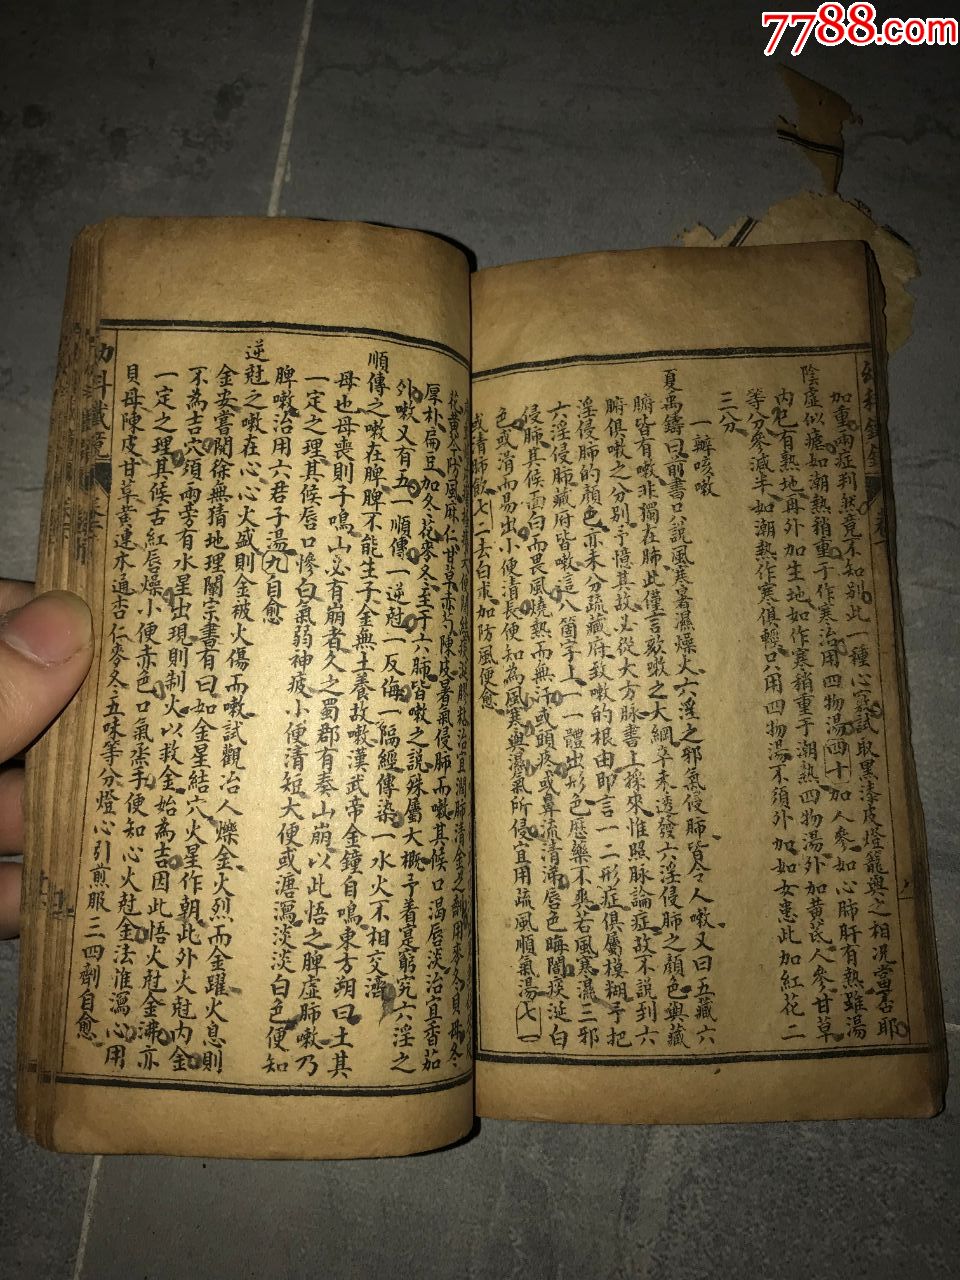 7788.com
加重兩症判然竟不如別此一種心竅試取黑漆皮燈籠與之相况當否耶
陰虛似瘧如潮熱稍重于作寒治用四物湯四十加人參如心肺肝有熱雖湯
內已有熟地再外加生地如作寒稍重于潮熱四物湯外加黃芪人參甘草
等分參減半如潮熱作寒俱輕只用四物湯不須外加如女患此加紅花二
三分
一辮咳嗽
夏禹鑄曰前書只說風寒暑濕燥火六淫之邪氣侵肺皆令人嗽又曰五藏六
腑皆有嗽非獨在肺此僅言欬嗽之大綱卒未透發六淫侵肺之顏色與藏
腑俱嗽之分別予憶其故必從大方脉書上採來惟照脉論症孜不說到六
淫侵肺的顏色亦未分疏藏府致嗽的根由即言一二形症俱屬模糊予把
六淫侵肺藏府皆嗽這八箇字上一一體出形色應藥不爽若風寒濕三邪
侵肺其候面白而畏風燒熱而無汗或頭疼或鼻流清涕唇色晦闇痰涎白
色或滑而易出小便清長便知為風寒與濕氣所侵宜用疏風順氣湯七一
或清肺飲七二去白朮加防風便愈
花黃芩防風麻仁甘草赤芍陳皮暑氣侵肺而嗽其候口渴唇淡治宜香茹
厚朴扁豆加冬花麥冬至于六肺皆嗽之說殊屬大概予着寔窮究六淫之
外嗽又有五一順傳一逆尅一反侮一隔經傳染一水火不相交濟
順傳之嗽在脾脾不能生子金無土養故嗽漢武帝金鐘自鳴東方朔曰土其
母也母喪則子鳴山必有崩者久之蜀郡有秦山崩以此悟之脾虛肺嗽乃
一定之理其候唇口慘白氣弱神疲小便清短大便或溏瀉淡淡白色便知
脾嗽治用六君子湯九自愈
逆尅之嗽在心心火盛則金被火傷而嗽試觀冶人爍金火烈而金躍火息則
金安嘗閱徐無猜地理闡宗書有曰如金星結穴火星作朝此外火尅內金
不為吉穴須兩旁有水星出現則制火以救金始為吉因此悟火尅金沸亦
一定之理其候舌紅唇燥小便赤色口氣烝手便知心火尅金法惟瀉心用
貝母陳皮甘草黃連木通杏仁麥冬五味等分燈心引煎服三四劑自愈
幼科鐵鏡